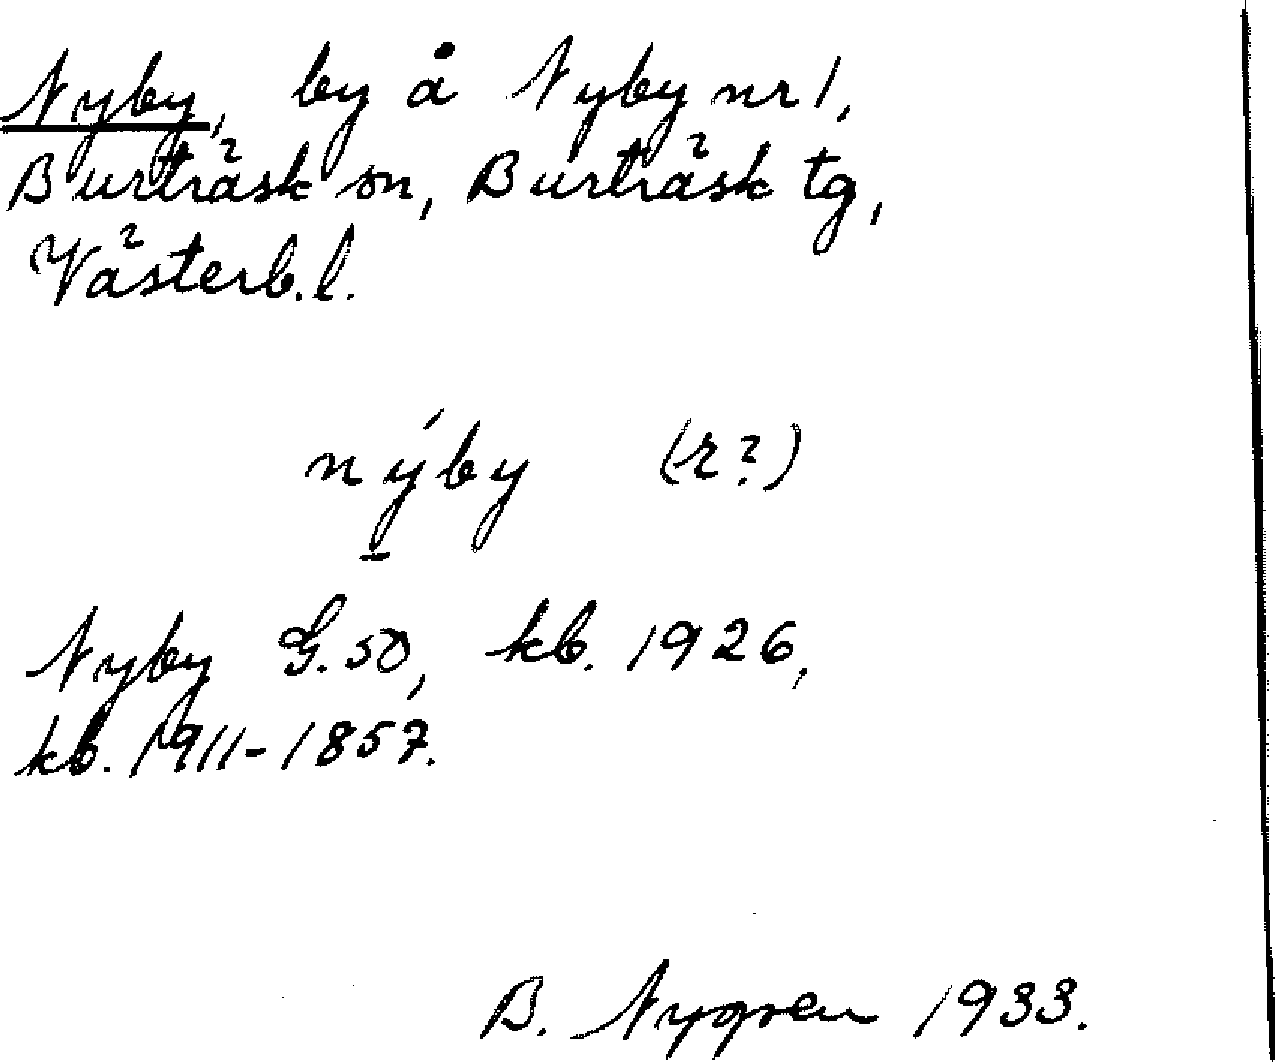 Nyby, by å Nyby nr 1,
Burträsk sn, Burträsk tg,
Västerb.l.
nýby (-r?)
Nyby G.50, kb. 1926,
kb. 1911-1857.
B. Nygren 1933.